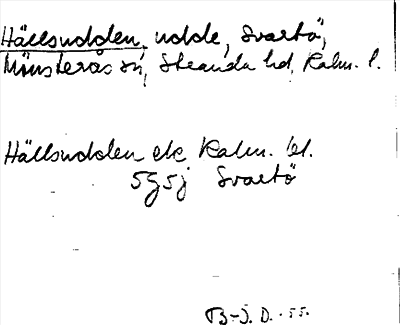 Hällsudden, udde, Svartö,
Mönsterås sn, Stranda hd, Kalm. l.
Hällsudden ek Kalm. bl.
5g5j Svartö
B-J. D. -55.